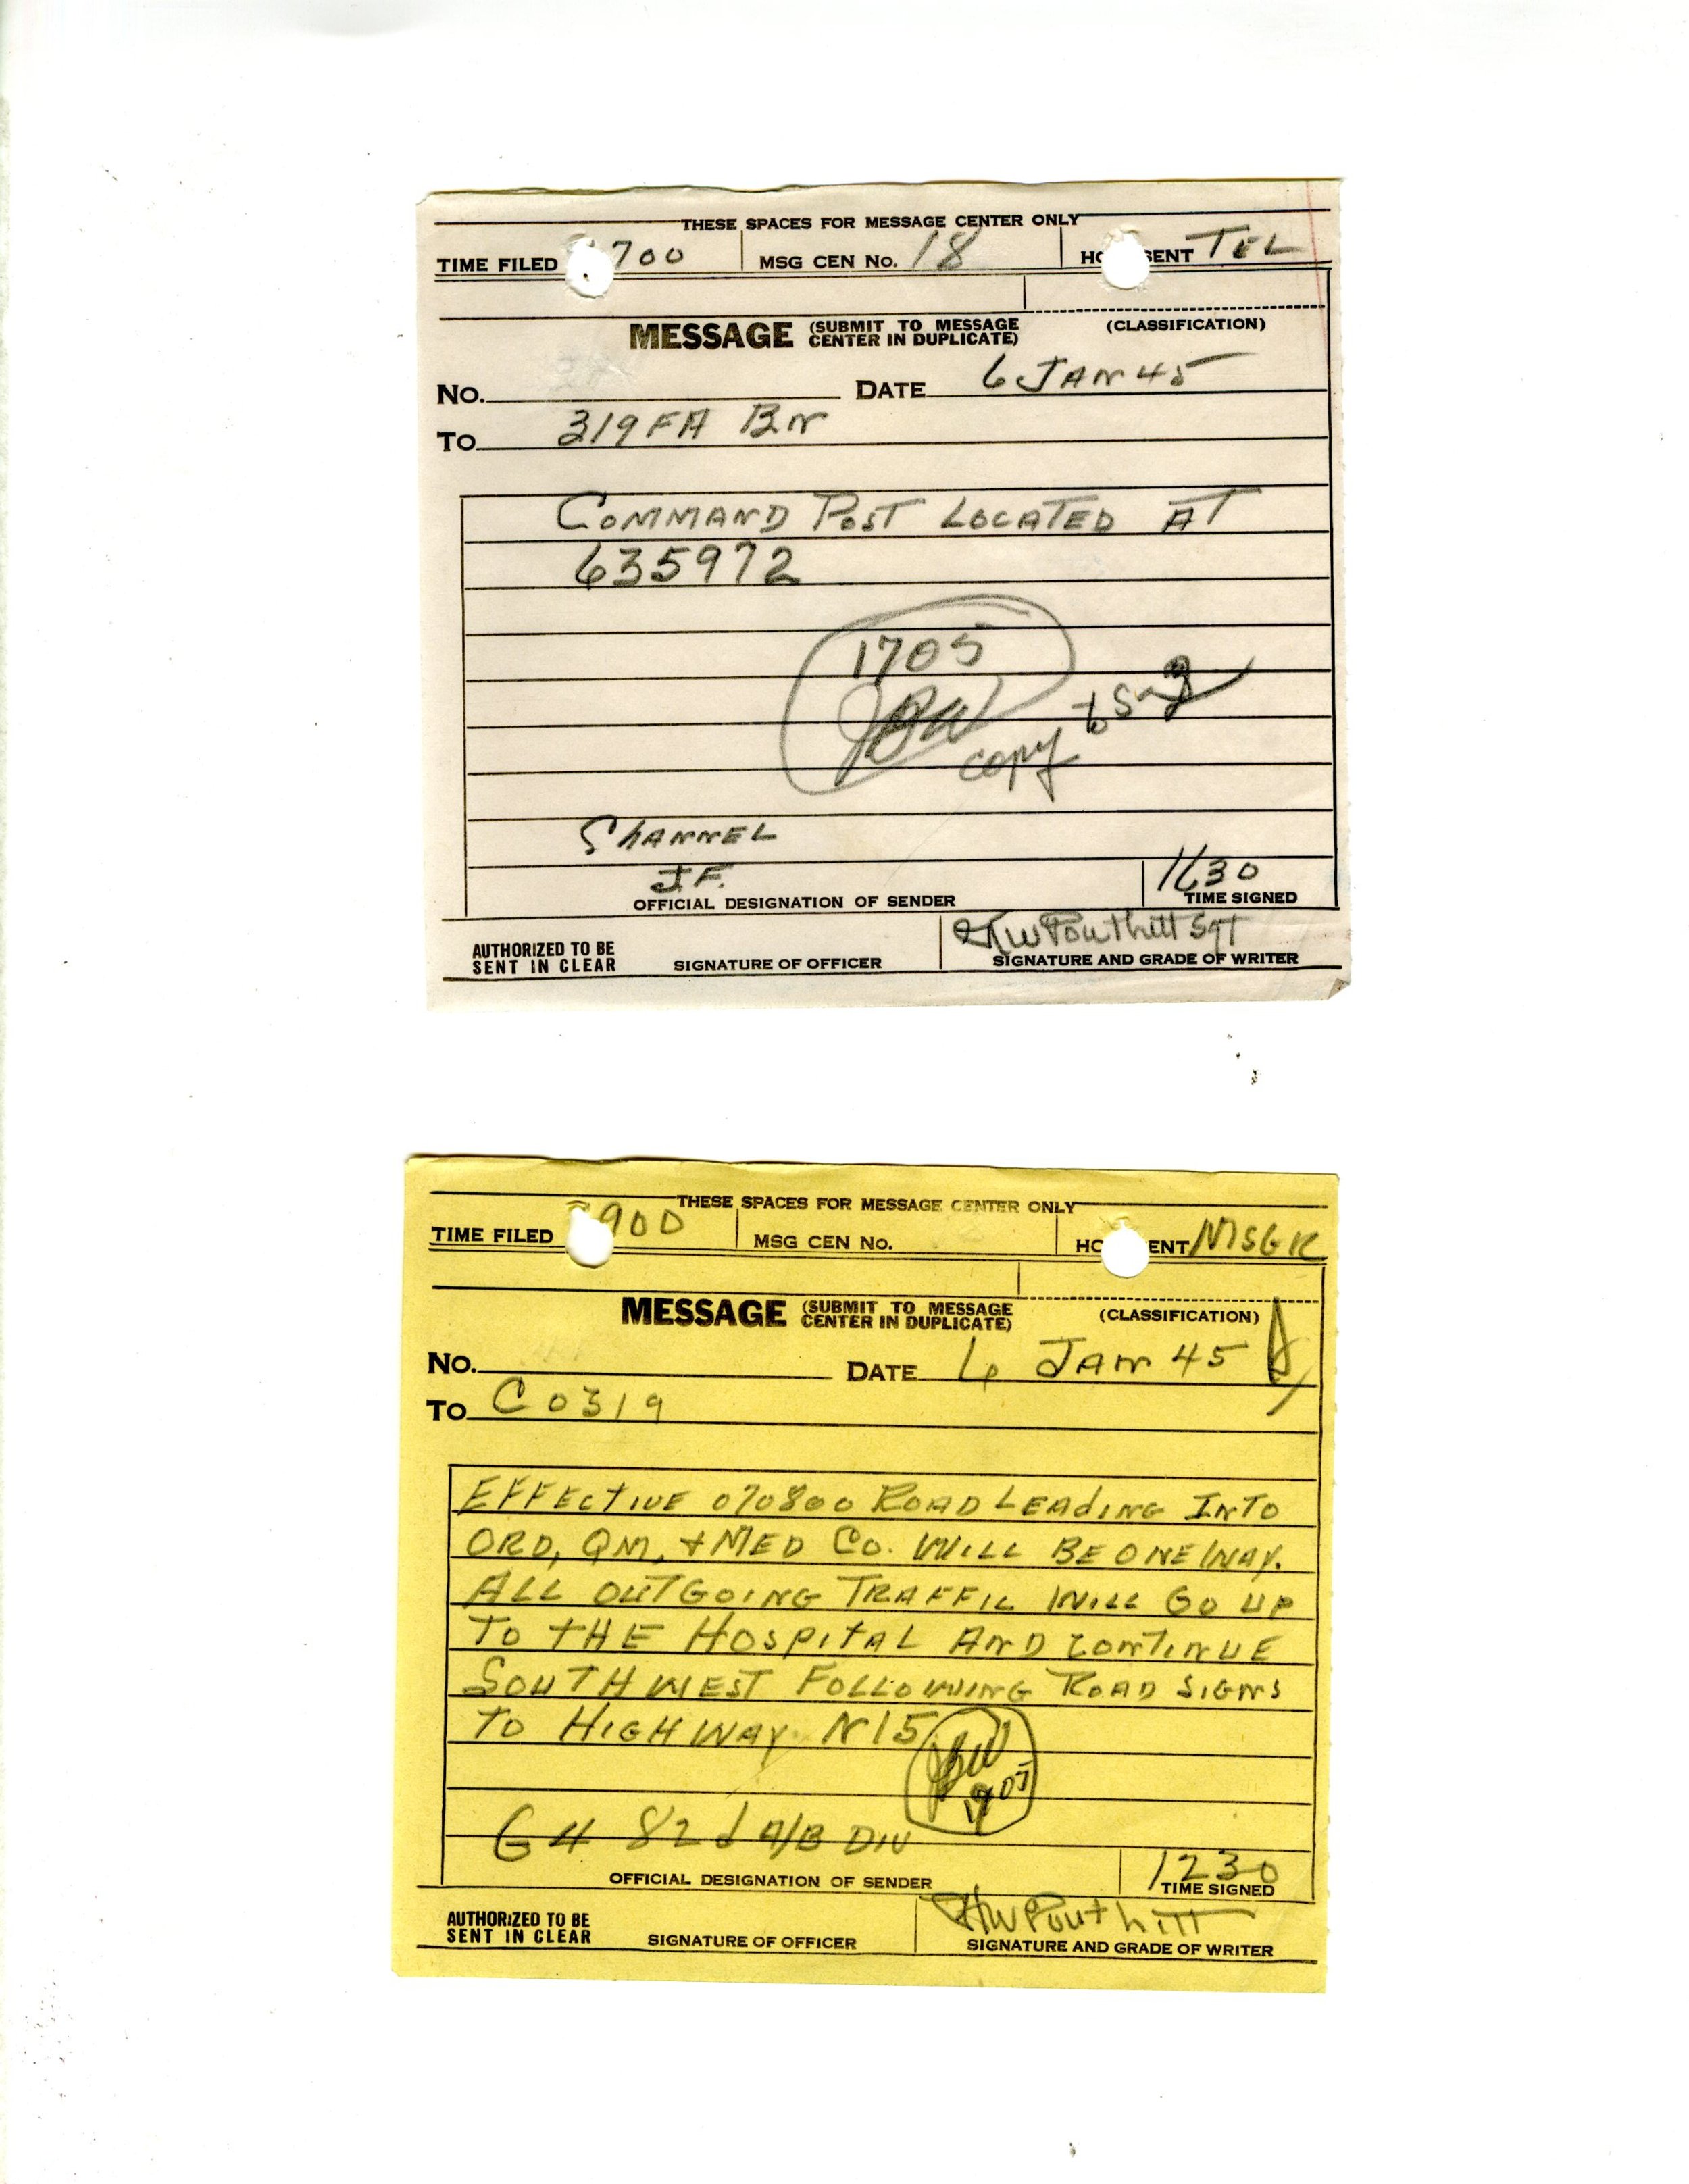 THESE SPACES FOR MESSAGE CENTER ONLY
TIME FILED 700 MSG CEN No. 18 HO SENT TEL
MESSAGE (SUBMIT TO MESSAGE CENTER IN DUPLICATE) (CLASSIFICATION)
No. DATE 6 JAN 45
TO 319 FA BN
COMMAND POST LOCATED AT
635972
1705
JBW
copy to
SHANNEL
J.F. 1630
OFFICIAL DESIGNATION OF SENDER TIME SIGNED
HW Pouthitt Sgt
AUTHORIZED TO BE
SENT IN CLEAR SIGNATURE OF OFFICER SIGNATURE AND GRADE OF WRITER
THESE SPACES FOR MESSAGE CENTER ONLY
TIME FILED 900 MSG CEN No. HO ENT MSGR
MESSAGE (SUBMIT TO MESSAGE CENTER IN DUPLICATE) (CLASSIFICATION)
No. DATE 6 JAN 45
TO CO 319
EFFECTIVE 070800 ROAD LEADING INTO
ORD, QM, + MED CO. WILL BE ONE WAY.
ALL OUTGOING TRAFFIC WILL GO UP
TO THE HOSPITAL AND CONTINUE
SOUTHWEST FOLLOWING ROAD SIGNS
TO HIGHWAY N15
JBW
G4 82d A/B DIV 1230
OFFICIAL DESIGNATION OF SENDER TIME SIGNED
HW Pouthitt
AUTHORIZED TO BE
SENT IN CLEAR SIGNATURE OF OFFICER SIGNATURE AND GRADE OF WRITER